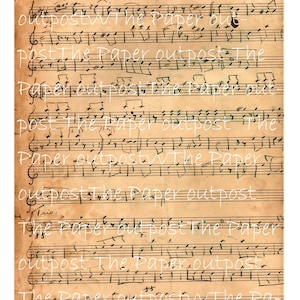 outpostVVThe Paper out
postThe Paper outpost
The Paper outpost
The Paper out
post The Paper outpost The
Paper outpostVVThe Paper
outpostThe Paper outpost
The Paper outpost The Paper
outpost The Paper outpost
The Paper outpost The Paper